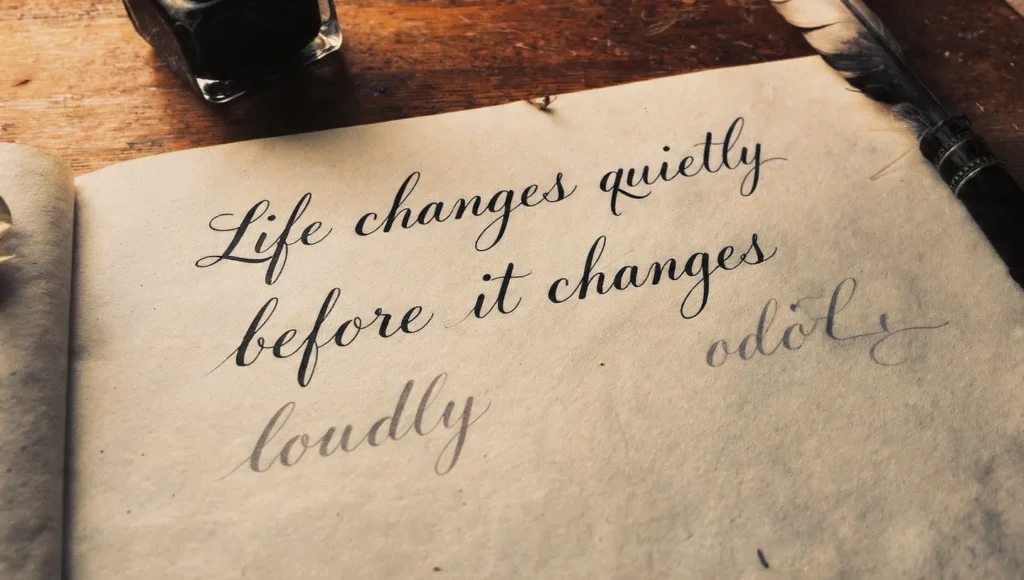 Life changes quietly
before it changes
loudly